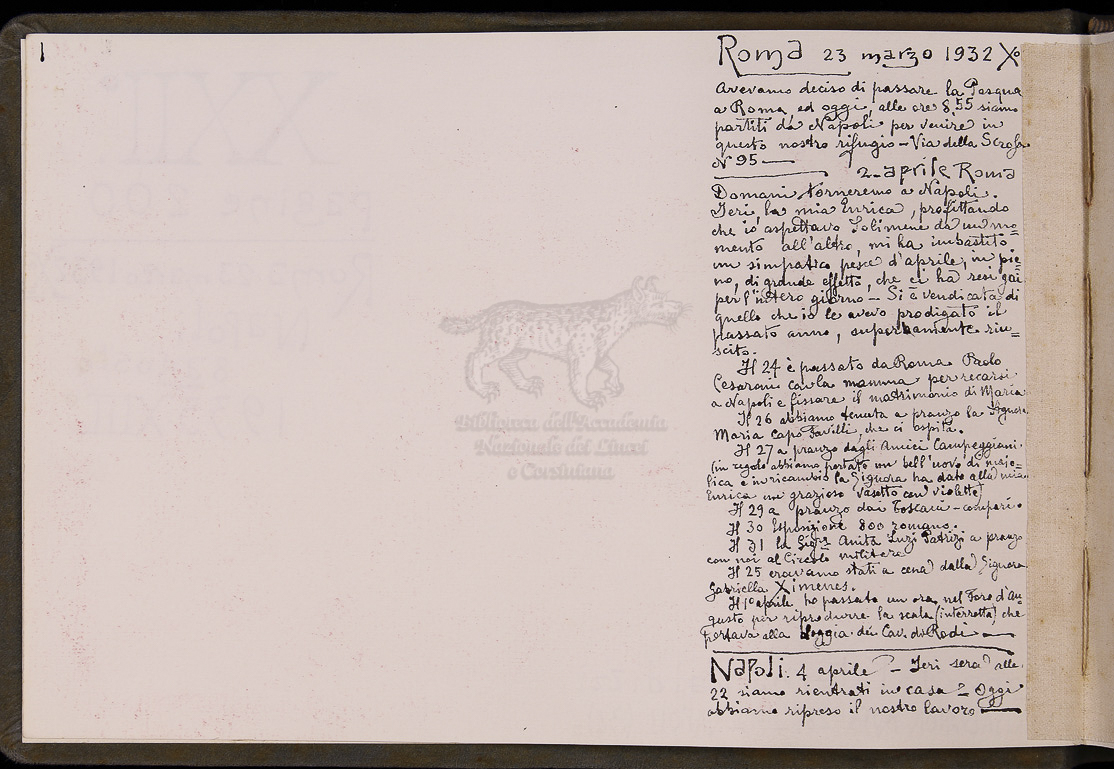 1
Roma 23 marzo 1932 Xº
Avevamo deciso di passare la Pasqua
a Roma, ed oggi, alle ore 8,55 siamo
partiti da Napoli per venire in
questo nostro rifugio - Via della Scrofa
N 95 —
2 - aprile Roma
Domani torneremo a Napoli.
Ieri, la mia Enrica, profittando
che io aspettavo Solimene da un mo=
mento all'altro, mi ha imbastito
un simpatico pesce d'aprile, in pie=
no, di grande effetto, che ci ha resi gai
per l'intero giorno - Si è vendicata di
quello che io le avevo prodigato il
passato anno, superbamente riu=
scito.
Il 24 è passato da Roma Paolo
Cesaroni con la mamma per recarsi
a Napoli e fissare il matrimonio di Maria
Il 26 abbiamo tenuta a pranzo la Signora
Maria Capo Favilli, che ci ospita.
Il 27 a pranzo dagli Amici Campeggiani.
(in regalo abbiamo portato un bell'uovo di maio=
lica e in ricambio la Signora ha dato alla mia
Enrica un grazioso vasetto con violette)
Il 29 a pranzo dai Toscani - compari.
Il 30 Esposizione 800 romano.
Il 31 la Sigra Anita Luzi Patrizi a pranzo
con noi al Circolo militare
Il 25 eravamo stati a cena dalla Signora
Gabriella Ximenes.
Il 1º aprile ho passato un'ora nel Foro d'Au=
gusto per riprodurre la scala (interrotta) che
portava alla Loggia dei Cav. di Rodi —
Napoli. 4 aprile - Ieri sera alle
22 siamo rientrati in casa = Oggi
abbiamo ripreso il nostro lavoro —
Biblioteca dell'Accademia
Nazionale dei Lincei
e Corsiniana